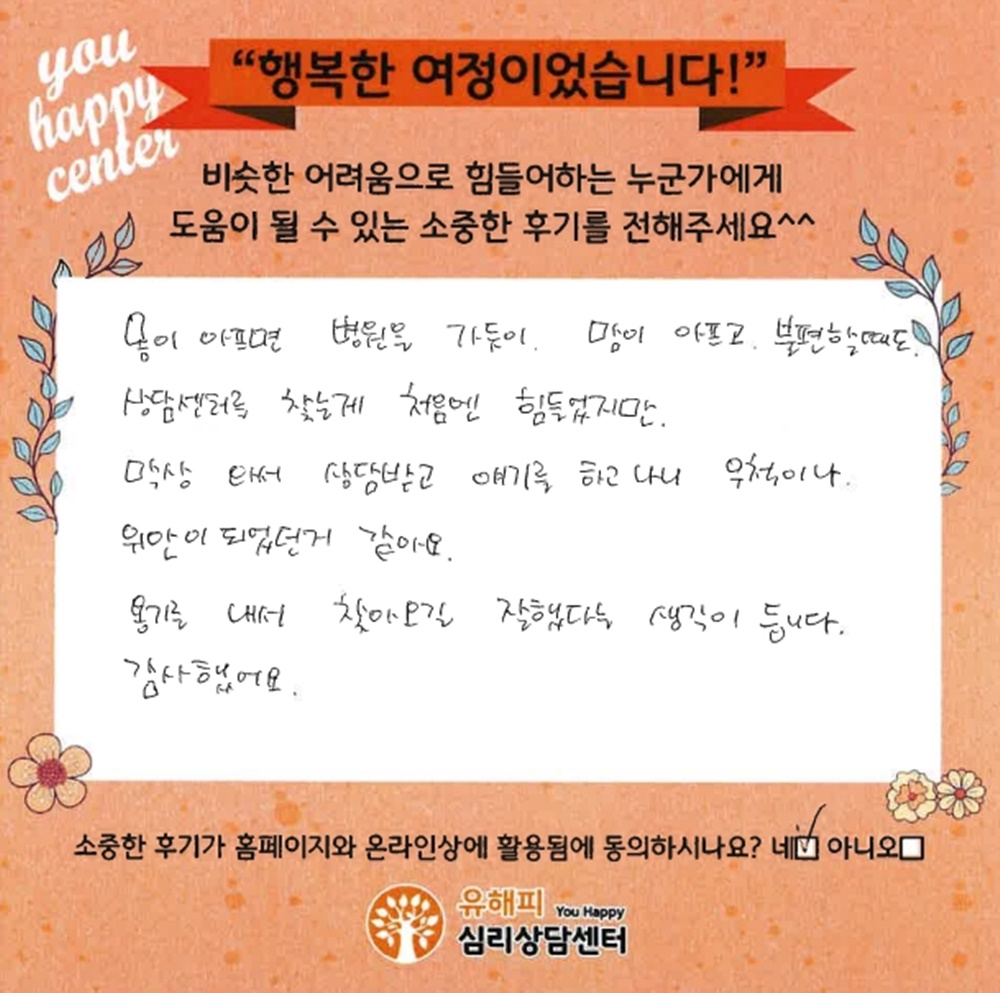 you
happy
center
“행복한 여정이었습니다!”
비슷한 어려움으로 힘들어하는 누군가에게
도움이 될 수 있는 소중한 후기를 전해주세요^^
몸이 아프면 병원을 가듯이. 맘이 아프고. 불편할때도.
상담센터를 찾는게 처음엔 힘들었지만.
막상 와서 상담받고 얘기를 하고 나니 무척이나.
위안이 되었던거 같아요.
용기를 내서 찾아오길 잘했다는 생각이 듭니다.
감사했어요.
소중한 후기가 홈페이지와 온라인상에 활용됨에 동의하시나요? 네☑ 아니오☐
유해피 You Happy
심리상담센터